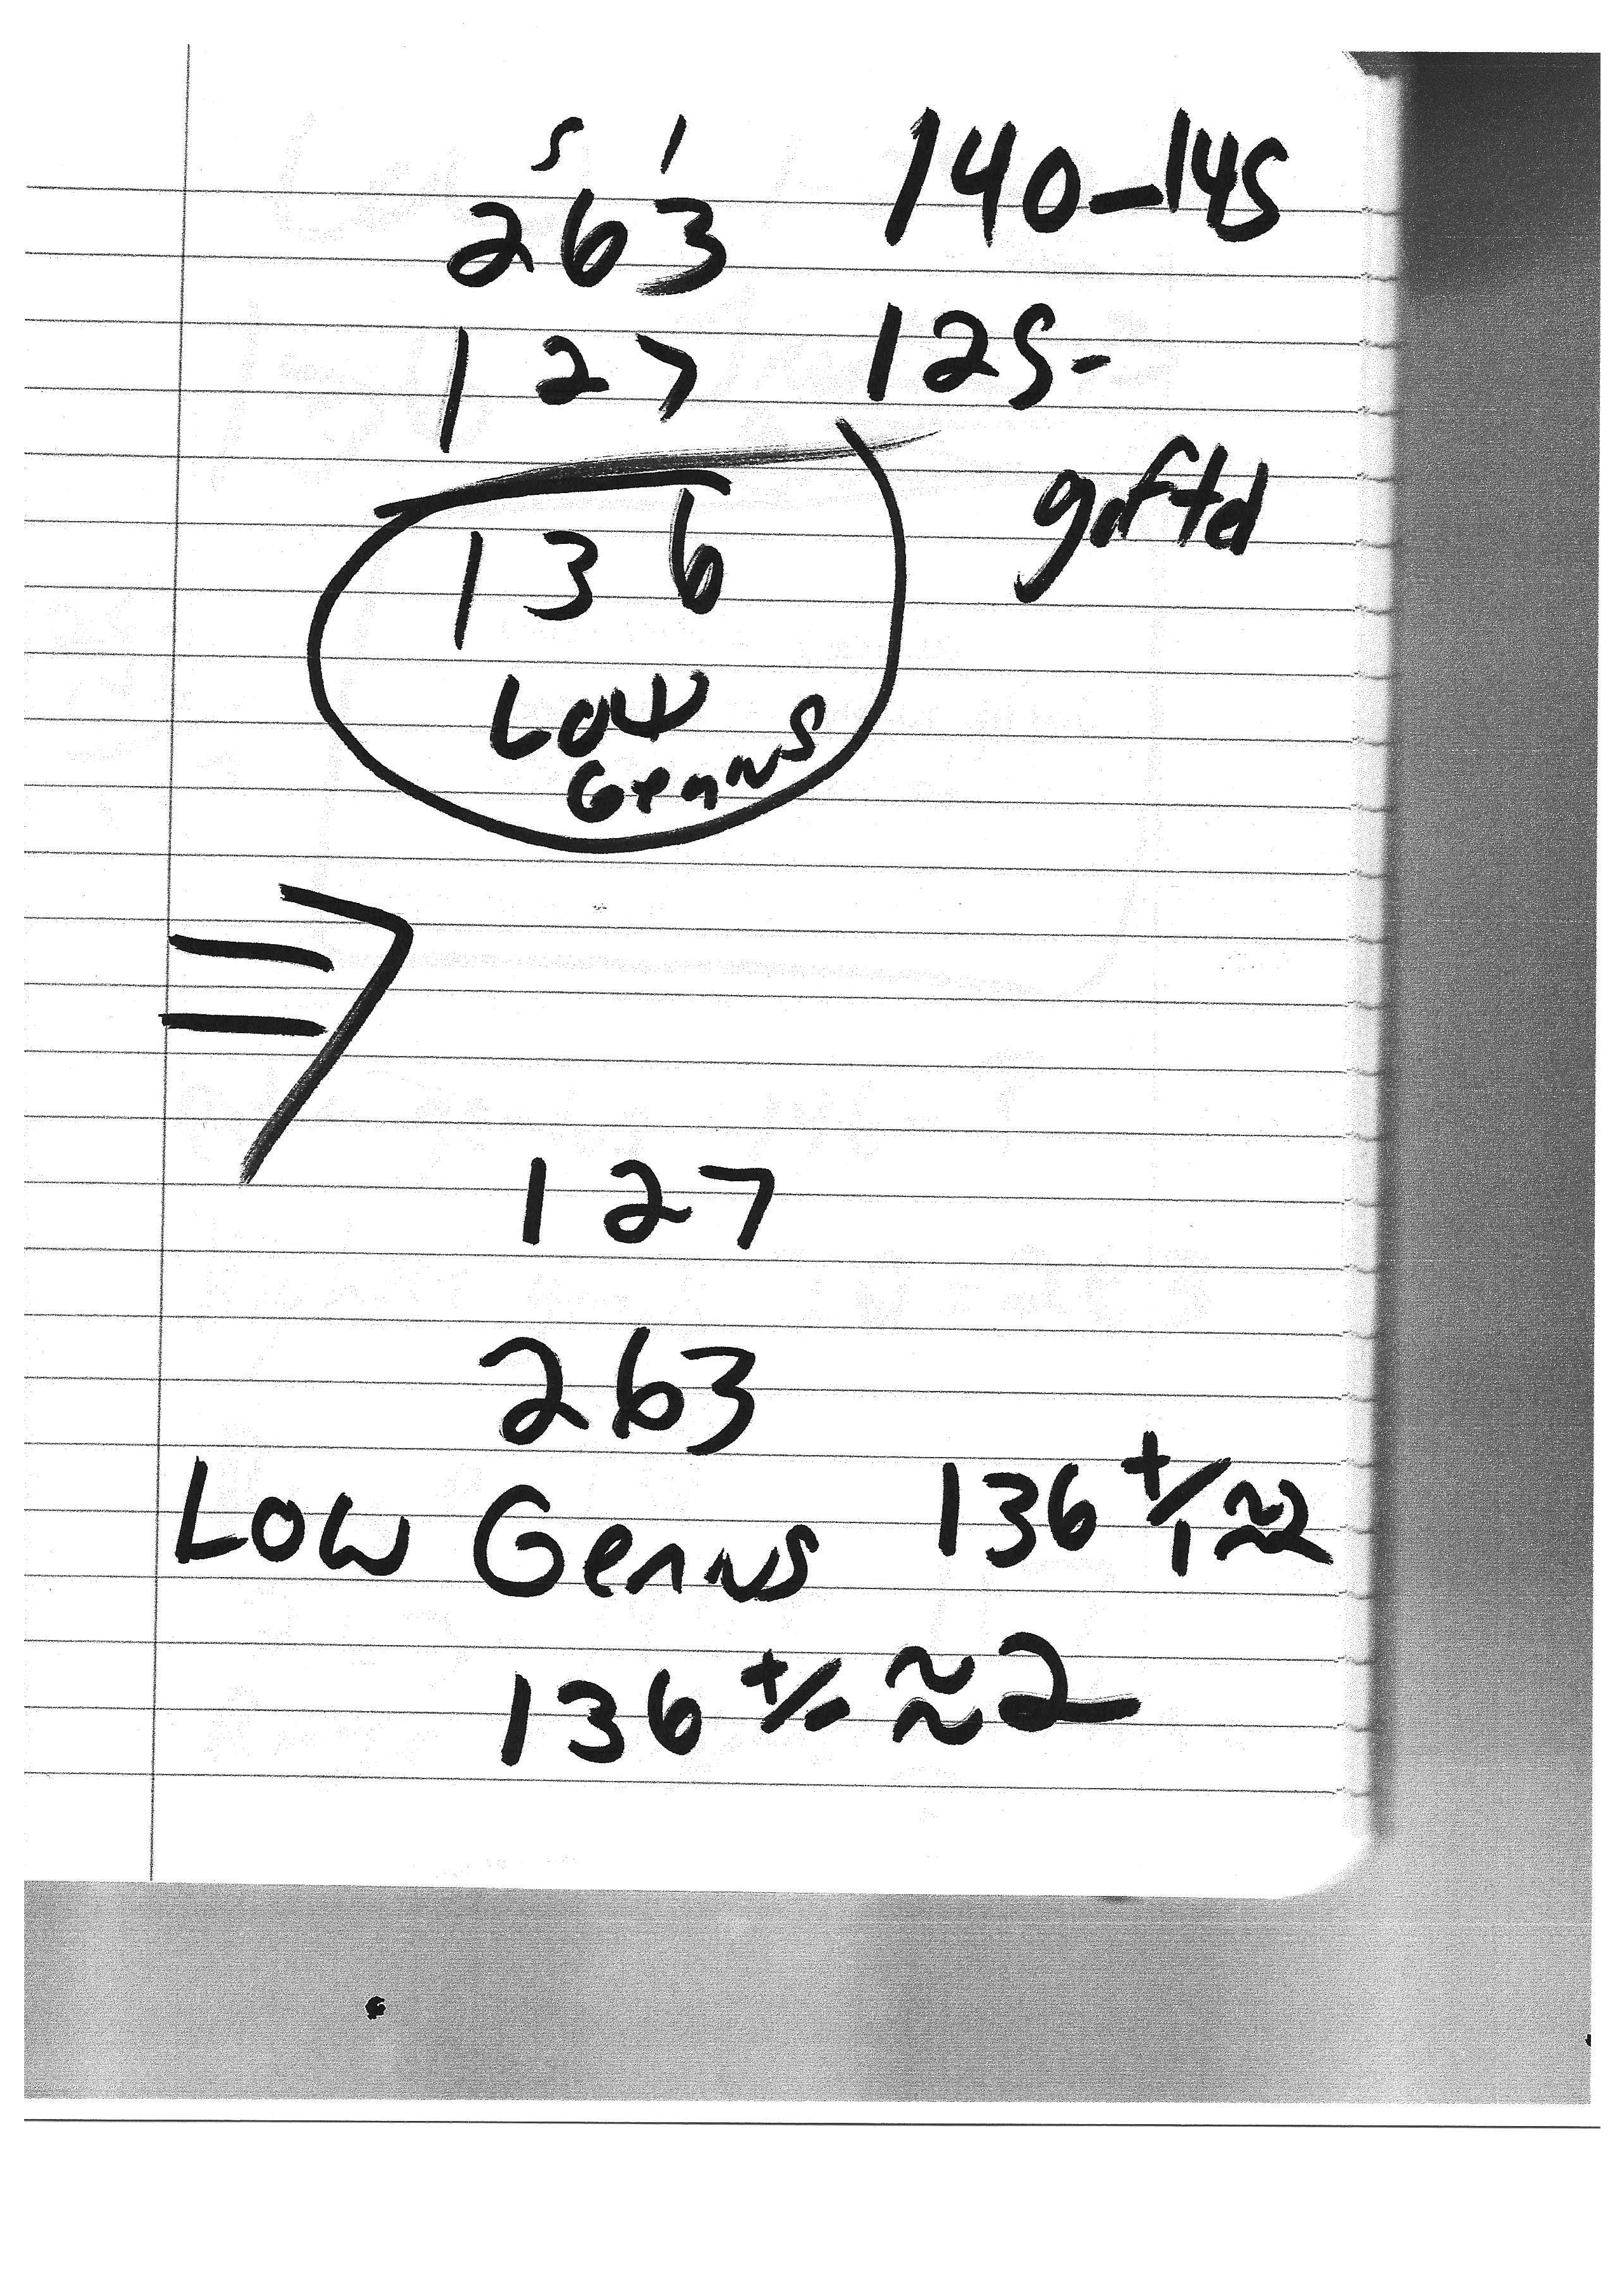 5 1
263 140-145
127 125-
136 gifted
Low
Genius
⇒
127
263
Low Genius 136 +/- ≈2
136 +/- ≈2